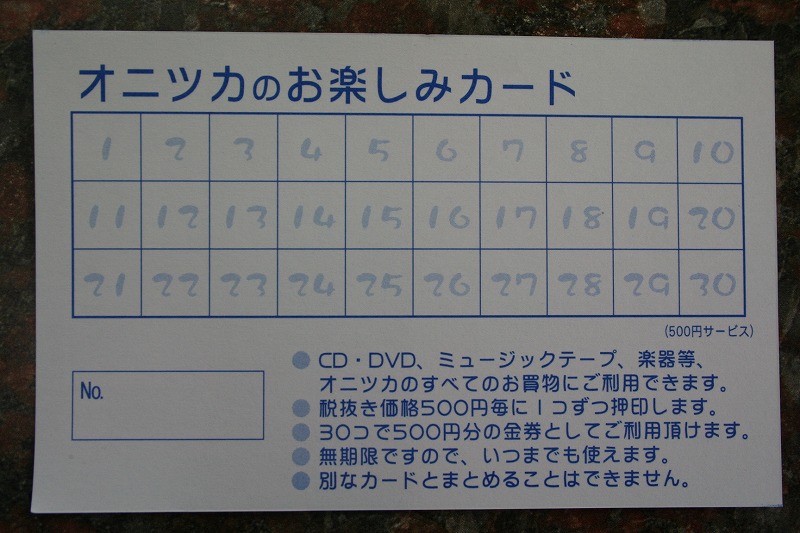 オニツカのお楽しみカード
1 2 3 4 5 6 7 8 9 10
11 12 13 14 15 16 17 18 19 20
21 22 23 24 25 26 27 28 29 30
(500円サービス)
No.
● CD・DVD、ミュージックテープ、楽器等、
オニツカのすべてのお買物にご利用できます。
● 税抜き価格500円毎に1つずつ押印します。
● 30コで500円分の金券としてご利用頂けます。
● 無期限ですので、いつまでも使えます。
● 別なカードとまとめることはできません。